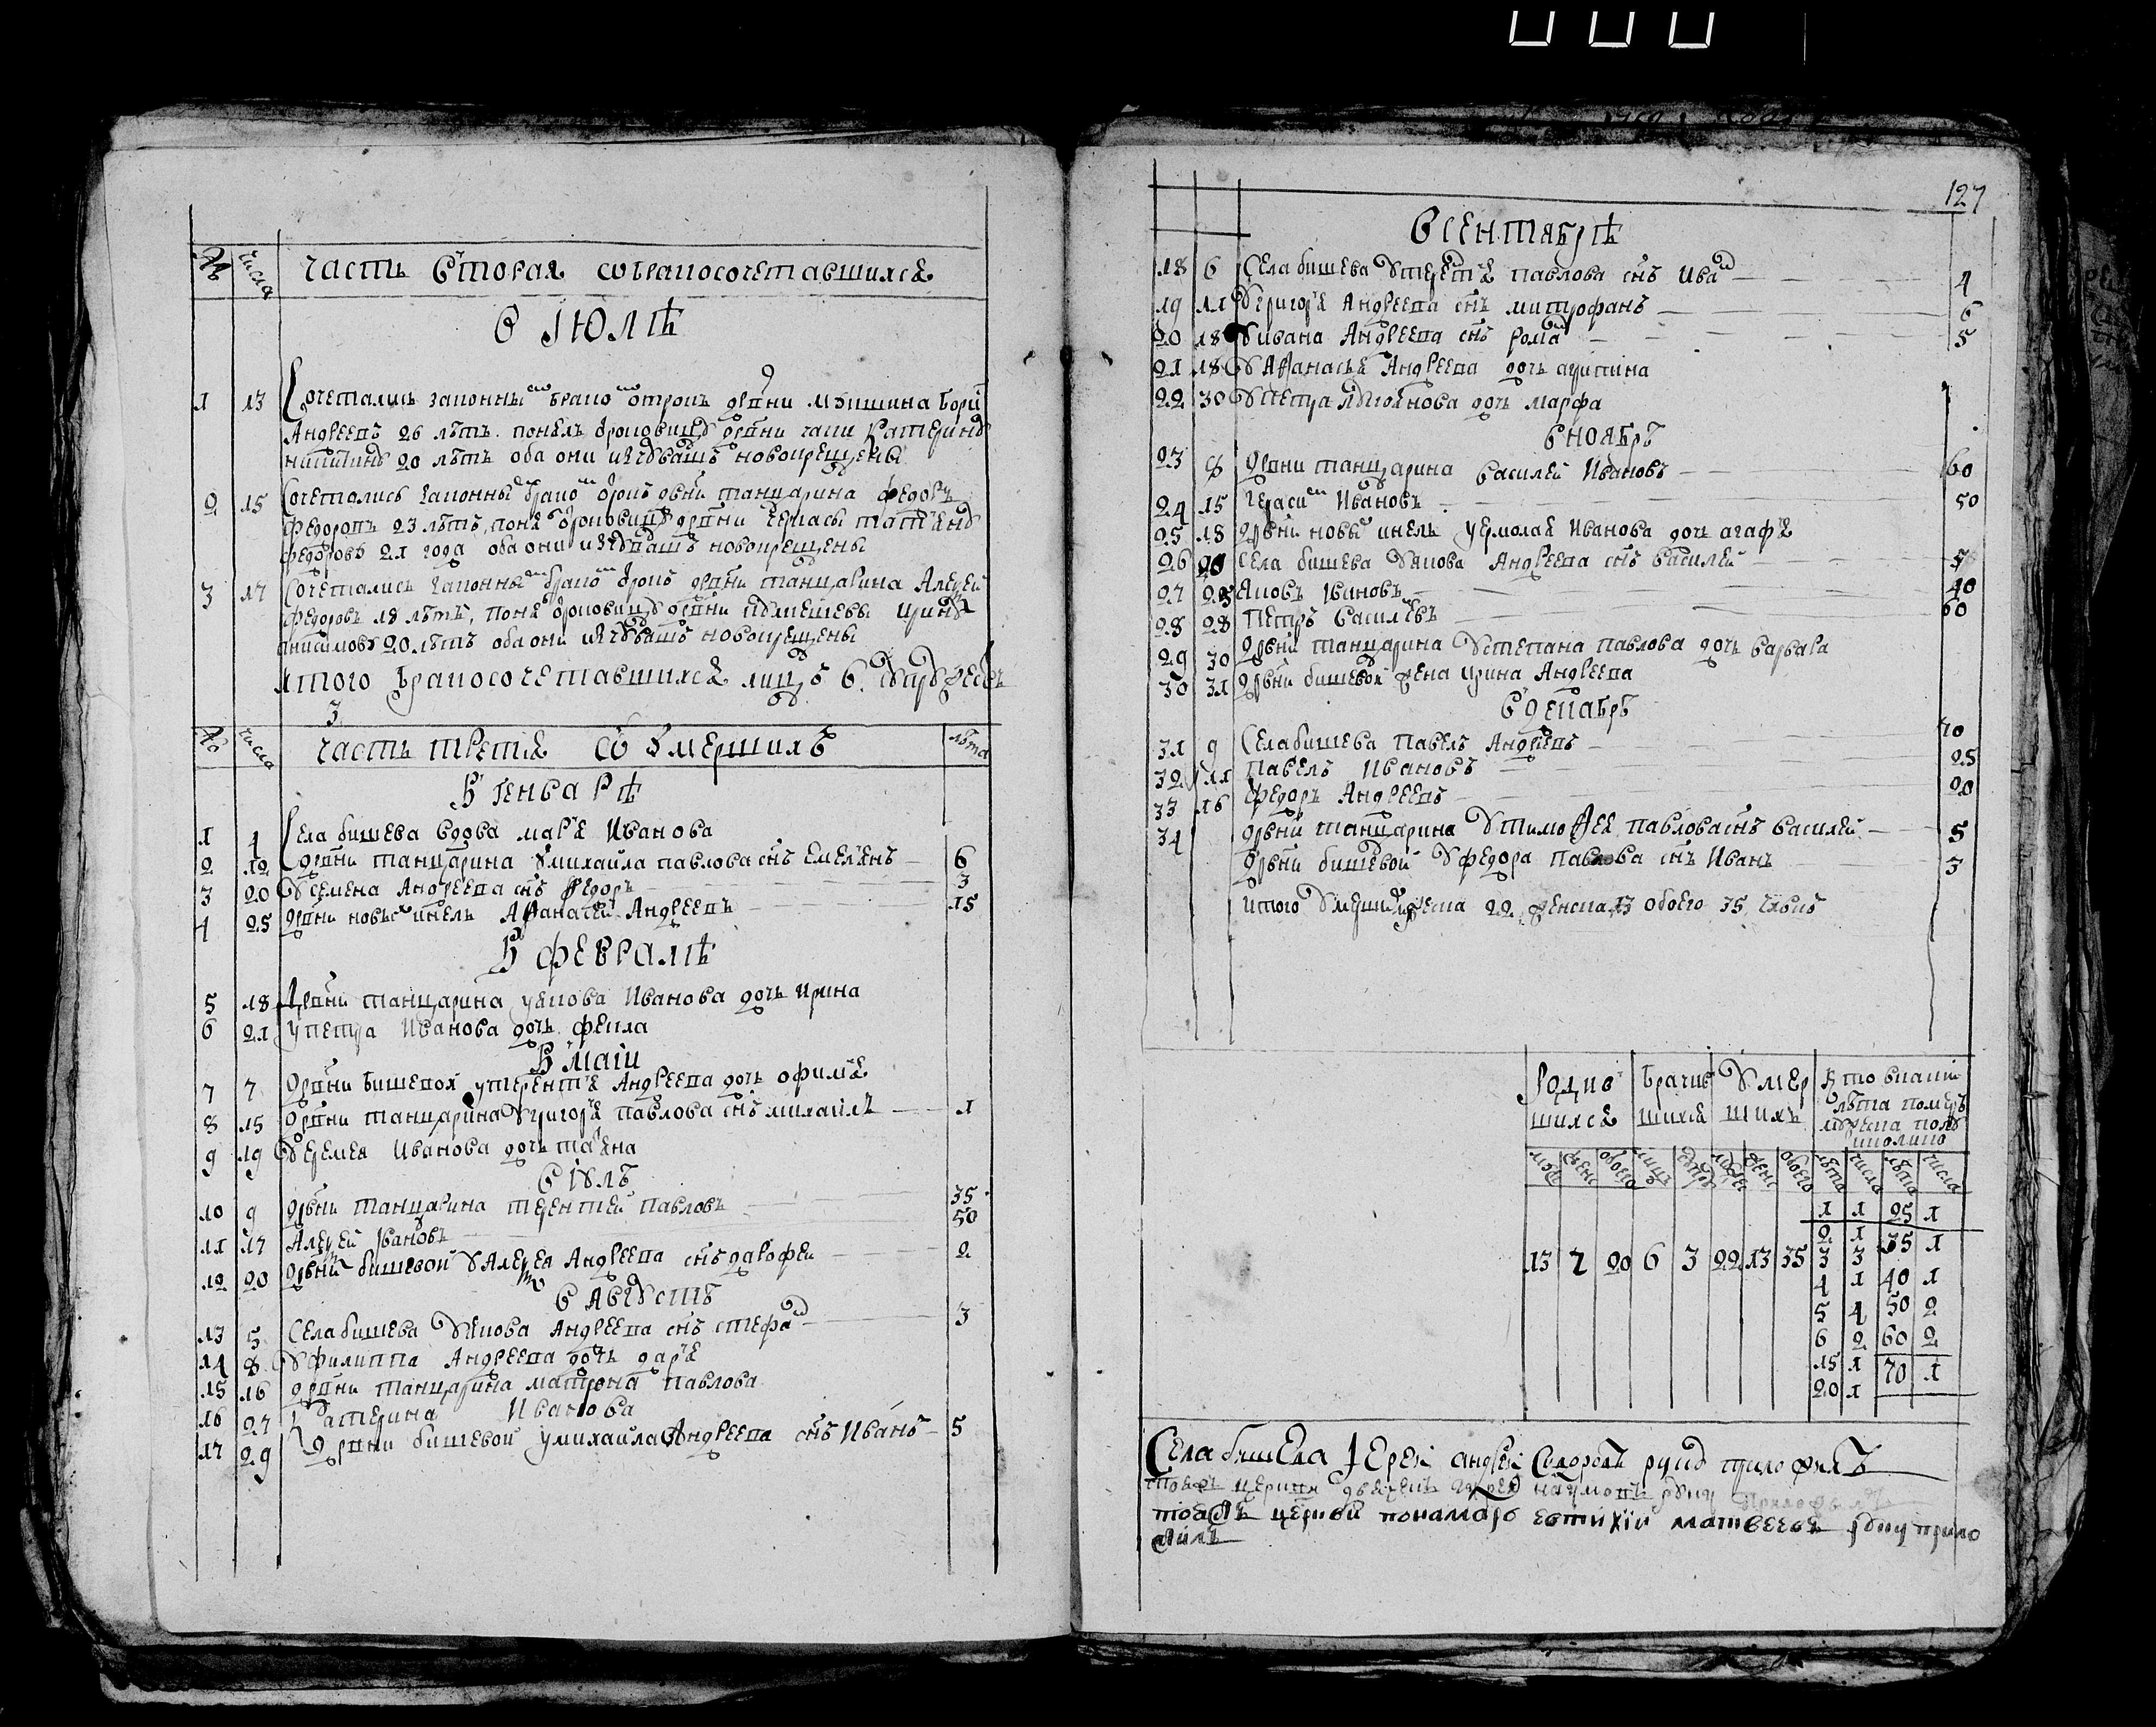 № числа часть вторая о бракосочетавшихся
В Июлѣ
1 13 Сочетались законнымъ бракомъ отрокъ дрвни
Андреевъ 26 лѣтъ. понялъ отроковицу дрвни Катерину
20 лѣтъ оба они изъ чувашъ новокрещены
2 15 Сочетались законнымъ бракомъ отрокъ дрвни танцарина Федоръ
Федоровъ 23 лѣтъ, понялъ отроковицу дрвни черкасы татьяну
Федорову 21 года оба они изъ чувашъ новокрещены
3 17 Сочетались законнымъ бракомъ отрокъ дрвни танцарина Алексей
Федоровъ 18 лѣтъ, понялъ отроковицу дрвни ирину
анисимову 20 лѣтъ оба они изъ чувашъ новокрещены
итого бракосочетавшихся лицъ 6.
3
№ числа часть третья о умершихъ лѣта
В генварѣ
1 4 Села бишева вдова марья Иванова
2 12 дрвни танцарина у михаила павлова снъ Емельянъ 6
3 20 У семена Андреева снъ Федоръ 3
4 25 дрвни новыхъ инель Афанасей Андреевъ 15
В февралѣ
5 18 Дрвни танцарина у якова Иванова дочь Ирина
6 21 у петра Иванова дочь фекла
В маiи
7 7 Дрвни бишевой у терентья Андреева дочь офимья
8 15 дрвни танцарина у григорья павлова снъ михаилъ 1
9 19 У еремея Иванова дочь татьяна
В iулѣ
10 9 дрвни танцарина терентей павловъ 35
11 17 Алексей Ивановъ 50
12 20 дрвни бишевой у Алексея Андреева снъ дарофей 2
В Августѣ
13 5 Села бишева у якова Андреева снъ стефанъ 3
14 8 У филиппа Андреева дочь дарья
15 16 дрвни танцарина матрона павлова
16 27 Катерина Иванова
17 29 дрвни бишевой у михаила Андреева снъ Иванъ 5
127
В сентябрѣ
18 6 Села бишева у терентья павлова снъ Иванъ 4
19 11 У григорья Андреева снъ митрофанъ 6
20 18 У ивана Андреева снъ романъ 5
21 18 У Афанасья Андреева дочь
22 30 У петра дочь марфа
В ноябрѣ
23 8 Дрвни танцарина василей Ивановъ 60
24 15 герасимъ Ивановъ 50
25 18 дрвни новы инель у ермолая Иванова дочь агафья
26 20 села бишева у якова Андреева снъ василей 5
27 25 яковъ Ивановъ 40
28 28 Петръ василевъ 60
29 30 дрвни танцарина у степана павлова дочь варвара
30 31 дрвни бишевой жена ирина Андреева
В декабрѣ
31 9 Села бишева павелъ Андреевъ 70
32 11 павелъ Ивановъ 25
33 16 федоръ Андреевъ 20
34 дрвни танцарина у тимофея павлова снъ василей 5
Дрвни бишевой у федора павлова снъ Иванъ 3
итого умершихъ 22 женска 13 обоего 35
Родив Брачив Умер
шихся шихся шихъ лѣта померъ
обоего лицъ обоего лѣта числа лѣта числа
1 1 25 1
2 1 35 1
13 7 20 6 3 22 13 35 3 3
4 1 40 1
5 4 50 2
6 2 60 2
15 1 70 1
20 1
Села бишева Iерей андрей руку приложилъ
тояжъ церкви руку приложилъ
тояжъ церкви понамарь евтихiй матвеевъ руку прило
жилъ